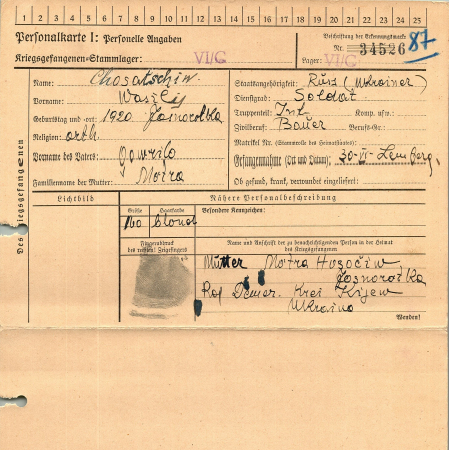 1 2 3 4 5 6 7 8 9 10 11 12 13 14 15 16 17 18 19 20 21 22 23 24 25
Personalkarte I: Personelle Angaben
Kriegsgefangenen-Stammlager: VI/C
Beschriftung der Erkennungsmarke
Nr. 34526 87
Lager: VI/C
Des Kriegsgefangenen
Name: Chosatschiw
Vorname: Wasyl
Geburtstag und -ort: 1920 Josnorolka
Religion: orth.
Vorname des Vaters: Gawrilo
Familienname der Mutter: Motra
Staatsangehörigkeit: Russ (Ukrainer)
Dienstgrad: Soldat
Truppenteil: Inf. Komp. usw.:
Zivilberuf: Bauer Berufs-Gr.:
Matrikel Nr. (Stammrolle des Heimatstaates):
Gefangennahme (Ort und Datum): 30-VI-Lemberg
Ob gesund, krank, verwundet eingeliefert:
Lichtbild
Nähere Personalbeschreibung
Größe Haarfarbe Besondere Kennzeichen:
160 blond
Fingerabdruck
des rechten Zeigefingers
Name und Anschrift der zu benachrichtigenden Person in der Heimat
des Kriegsgefangenen
Mutter Motra
Kreis Kijew
Ukraina
Wenden!